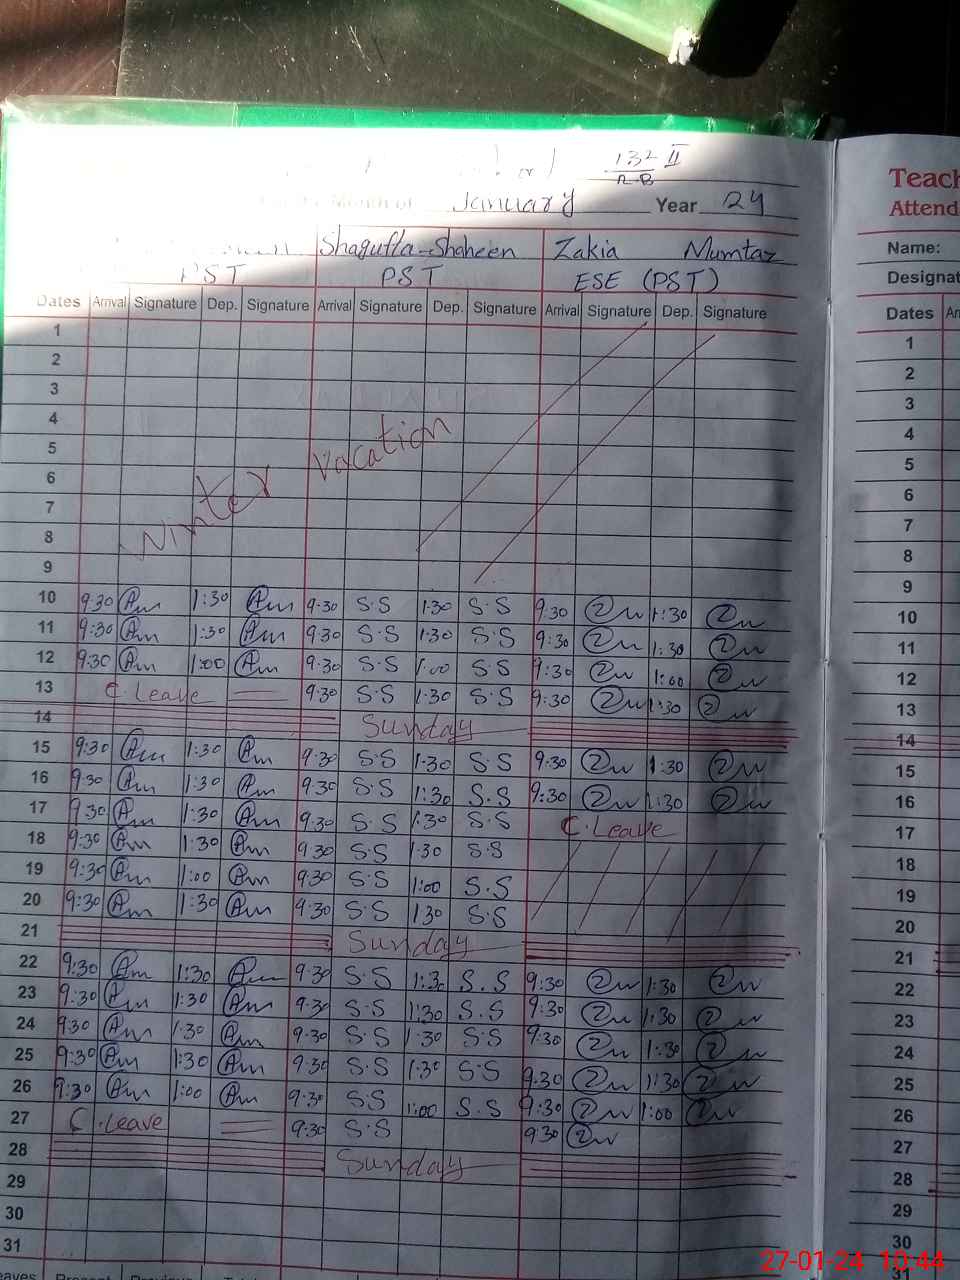 132 II
R-B
Month of January Year 24
Shagufta-Shaheen Zakia Mumtaz
PST PST ESE (PST)
Dates Arrival Signature Dep. Signature Arrival Signature Dep. Signature Arrival Signature Dep. Signature
1
2
3
4
5
6
7
8
9
Winter Vacation
10 9:30 Am 1:30 Am 9:30 S.S 1:30 S.S 9:30 1:30
11 9:30 Am 1:30 Am 9:30 S.S 1:30 S.S 9:30 1:30
12 9:30 Am 1:00 Am 9:30 S.S 1:00 S.S 9:30 1:00
13 C.Leave 9:30 S.S 1:30 S.S 9:30 1:30
14 Sunday
15 9:30 Am 1:30 Am 9:30 S.S 1:30 S.S 9:30 1:30
16 9:30 Am 1:30 Am 9:30 S.S 1:30 S.S 9:30 1:30
17 9:30 Am 1:30 Am 9:30 S.S 1:30 S.S C.Leave
18 9:30 Am 1:30 Am 9:30 S.S 1:30 S.S
19 9:30 Am 1:00 Am 9:30 S.S 1:00 S.S
20 9:30 Am 1:30 Am 9:30 S.S 1:30 S.S
21 Sunday
22 9:30 Am 1:30 Am 9:30 S.S 1:30 S.S 9:30 1:30
23 9:30 Am 1:30 Am 9:30 S.S 1:30 S.S 9:30 1:30
24 9:30 Am 1:30 Am 9:30 S.S 1:30 S.S 9:30 1:30
25 9:30 Am 1:30 Am 9:30 S.S 1:30 S.S 9:30 1:30
26 9:30 Am 1:00 Am 9:30 S.S 1:00 S.S 9:30 1:00
27 C.Leave 9:30 S.S 9:30
28 Sunday
29
30
31
Present
Teach
Attend
Name:
Designat
Dates
1
2
3
4
5
6
7
8
9
10
11
12
13
14
15
16
17
18
19
20
21
22
23
24
25
26
27
28
29
30
27-01-24 10:44